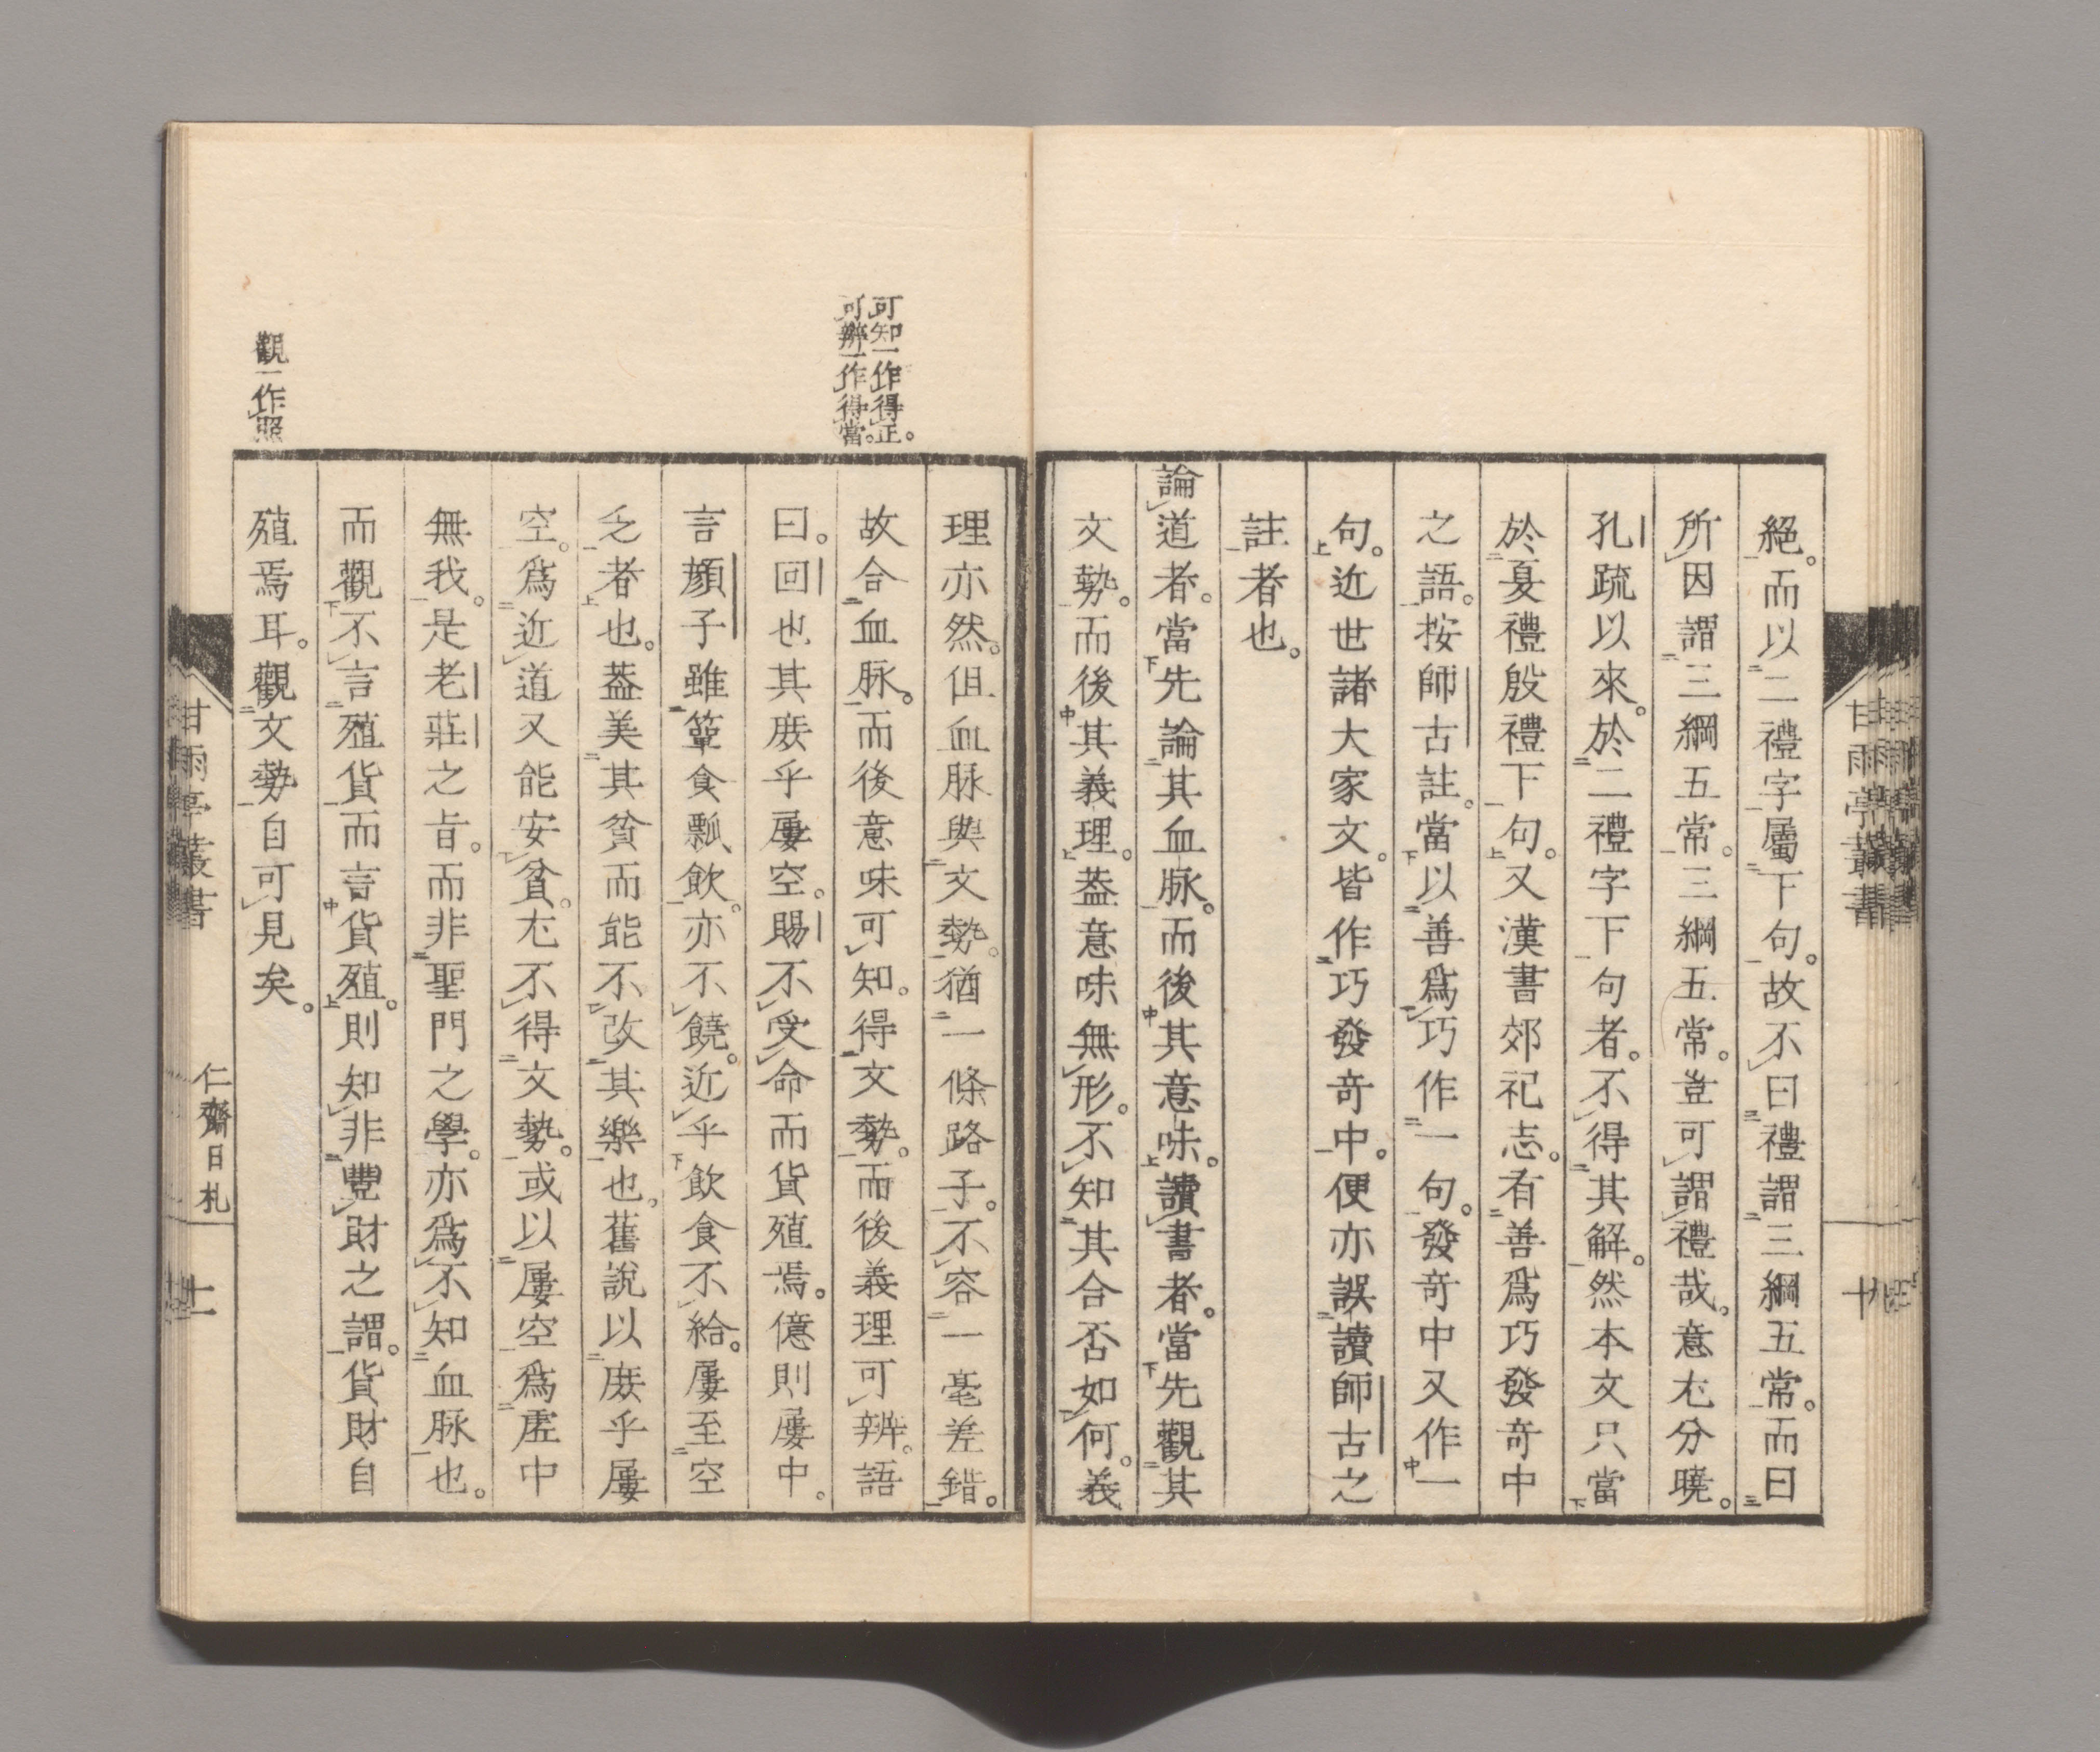 絕。而以二禮字屬下句。故不曰禮謂三綱五常。而曰
所因謂三綱五常。三綱五常。豈可謂禮哉。意尤分曉。
孔疏以來。於二禮字下句者。不得其解。然本文只當
於夏禮殷禮下句。又漢書郊祀志。有善爲巧發奇中
之語。按師古註。當以善爲巧作一句。發奇中又作一
句。近世諸大家文。皆作巧發奇中。便亦誤讀師古之
註者也。
論道者。當先論其血脉。而後其意味。讀書者。當先觀其
文勢。而後其義理。蓋意味無形。不知其合否如何。義
理亦然。但血脉與文勢。猶一條路子。不容一毫差錯。
可知一作得正。
可辨一作得當。
故合血脉。而後意味可知。得文勢。而後義理可辨。語
曰。回也其庶乎屢空。賜不受命而貨殖焉。億則屢中。
言顏子雖簞食瓢飲。亦不饒。近乎飲食不給。屢至空
乏者也。蓋美其貧而能不改其樂也。舊說以庶乎屢
空。爲近道又能安貧。尤不得文勢。或以屢空爲虛中
無我。是老莊之旨。而非聖門之學。亦爲不知血脉也。
而觀不言殖貨而言貨殖。則知非豐財之謂。貨財自
觀一作照
殖焉耳。觀文勢自可見矣。
甘雨亭叢書
仁齋日札
十一
甘雨亭叢書
十